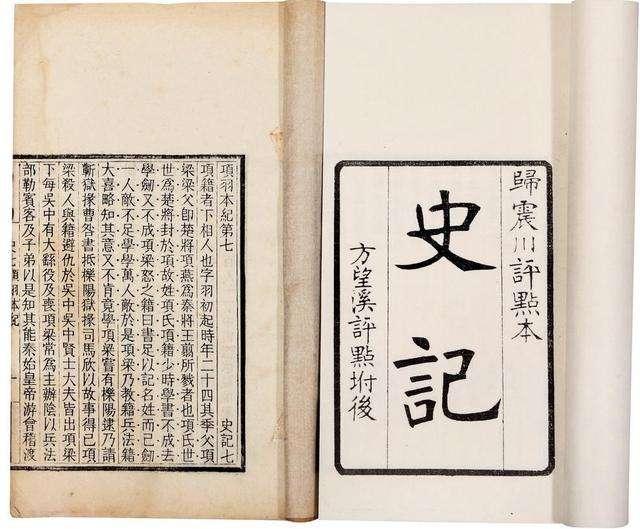 歸震川評點本
史記
方望溪評點坿後
項羽本紀第七　史記七
項籍者下相人也字羽初起時年二十四其季父項
梁梁父卽楚將項燕爲秦將王翦所戮者也項氏世
世爲楚將封於項故姓項氏項籍少時學書不成去
學劍又不成項梁怒之籍曰書足以記名姓而已劍
一人敵不足學學萬人敵於是項梁乃教籍兵法籍
大喜略知其意又不肯竟學項梁嘗有櫟陽逮乃請
蘄獄掾曹咎書抵櫟陽獄掾司馬欣以故事得已項
梁殺人與籍避仇於吳中吳中賢士大夫皆出項梁
下每吳中有大繇役及喪項梁常爲主辦陰以兵法
部勒賓客及子弟以是知其能秦始皇帝游會稽渡